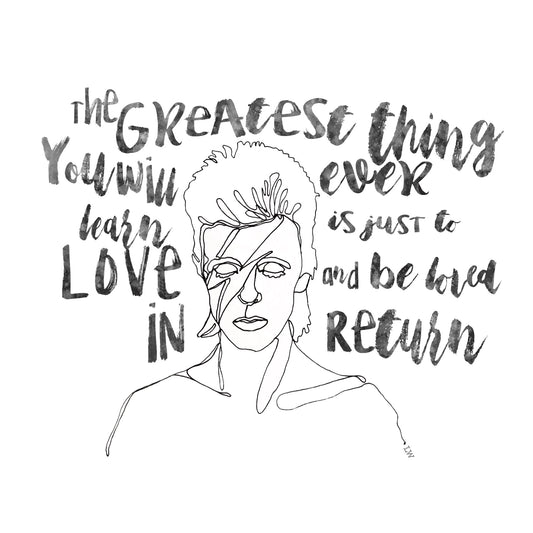 The GREATEST thing
You will ever
learn is just to
LOVE and be loved
IN Return
LW